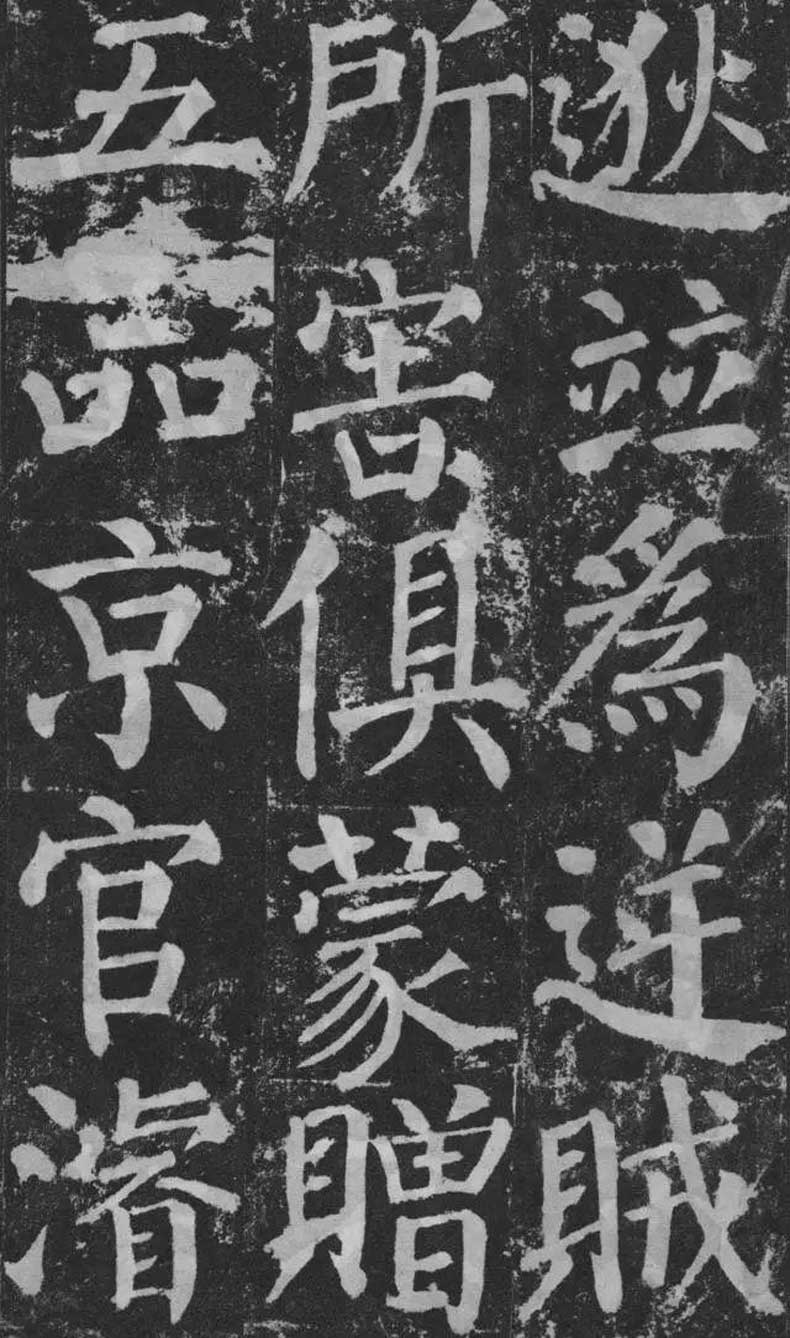 逖竝為逆賊
所害俱蒙贈
五品京官濬